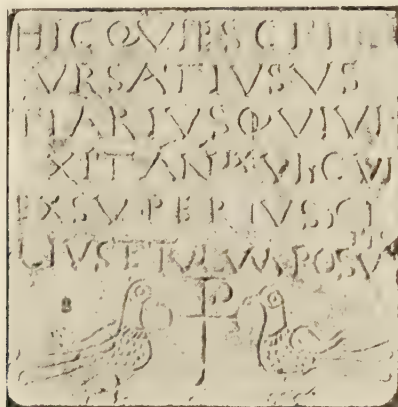 HIC QVIESCIT
VRSATIVS VS
TIARIVS QVI VI
XIT AN LXVII CVI
EXSVPERIVS FI
LIVS TETVLVM POSV